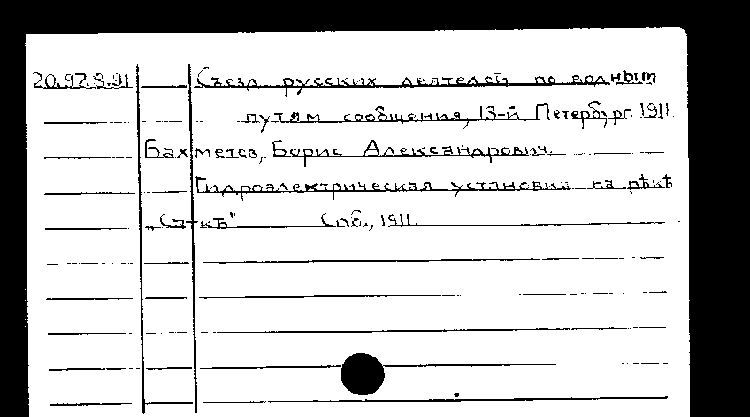 20.97.3.91 Съезд русских деятелей по водным
путям сообщения, 13-й, Петербург. 1911.
Бахметев, Борис Александрович.
Гидроэлектрическая установка на рѣкѣ
„Саткѣ" Спб., 1911.